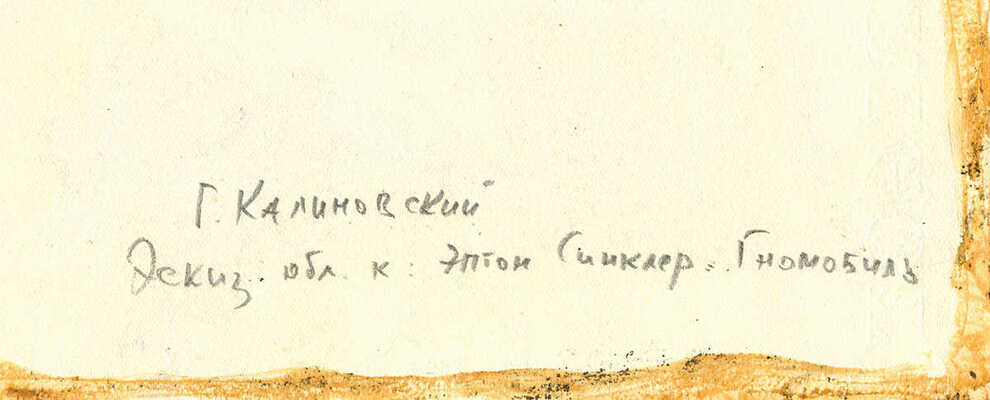 Г. Калиновский
Эскиз обл. к: Эптон Синклер. Гномобиль